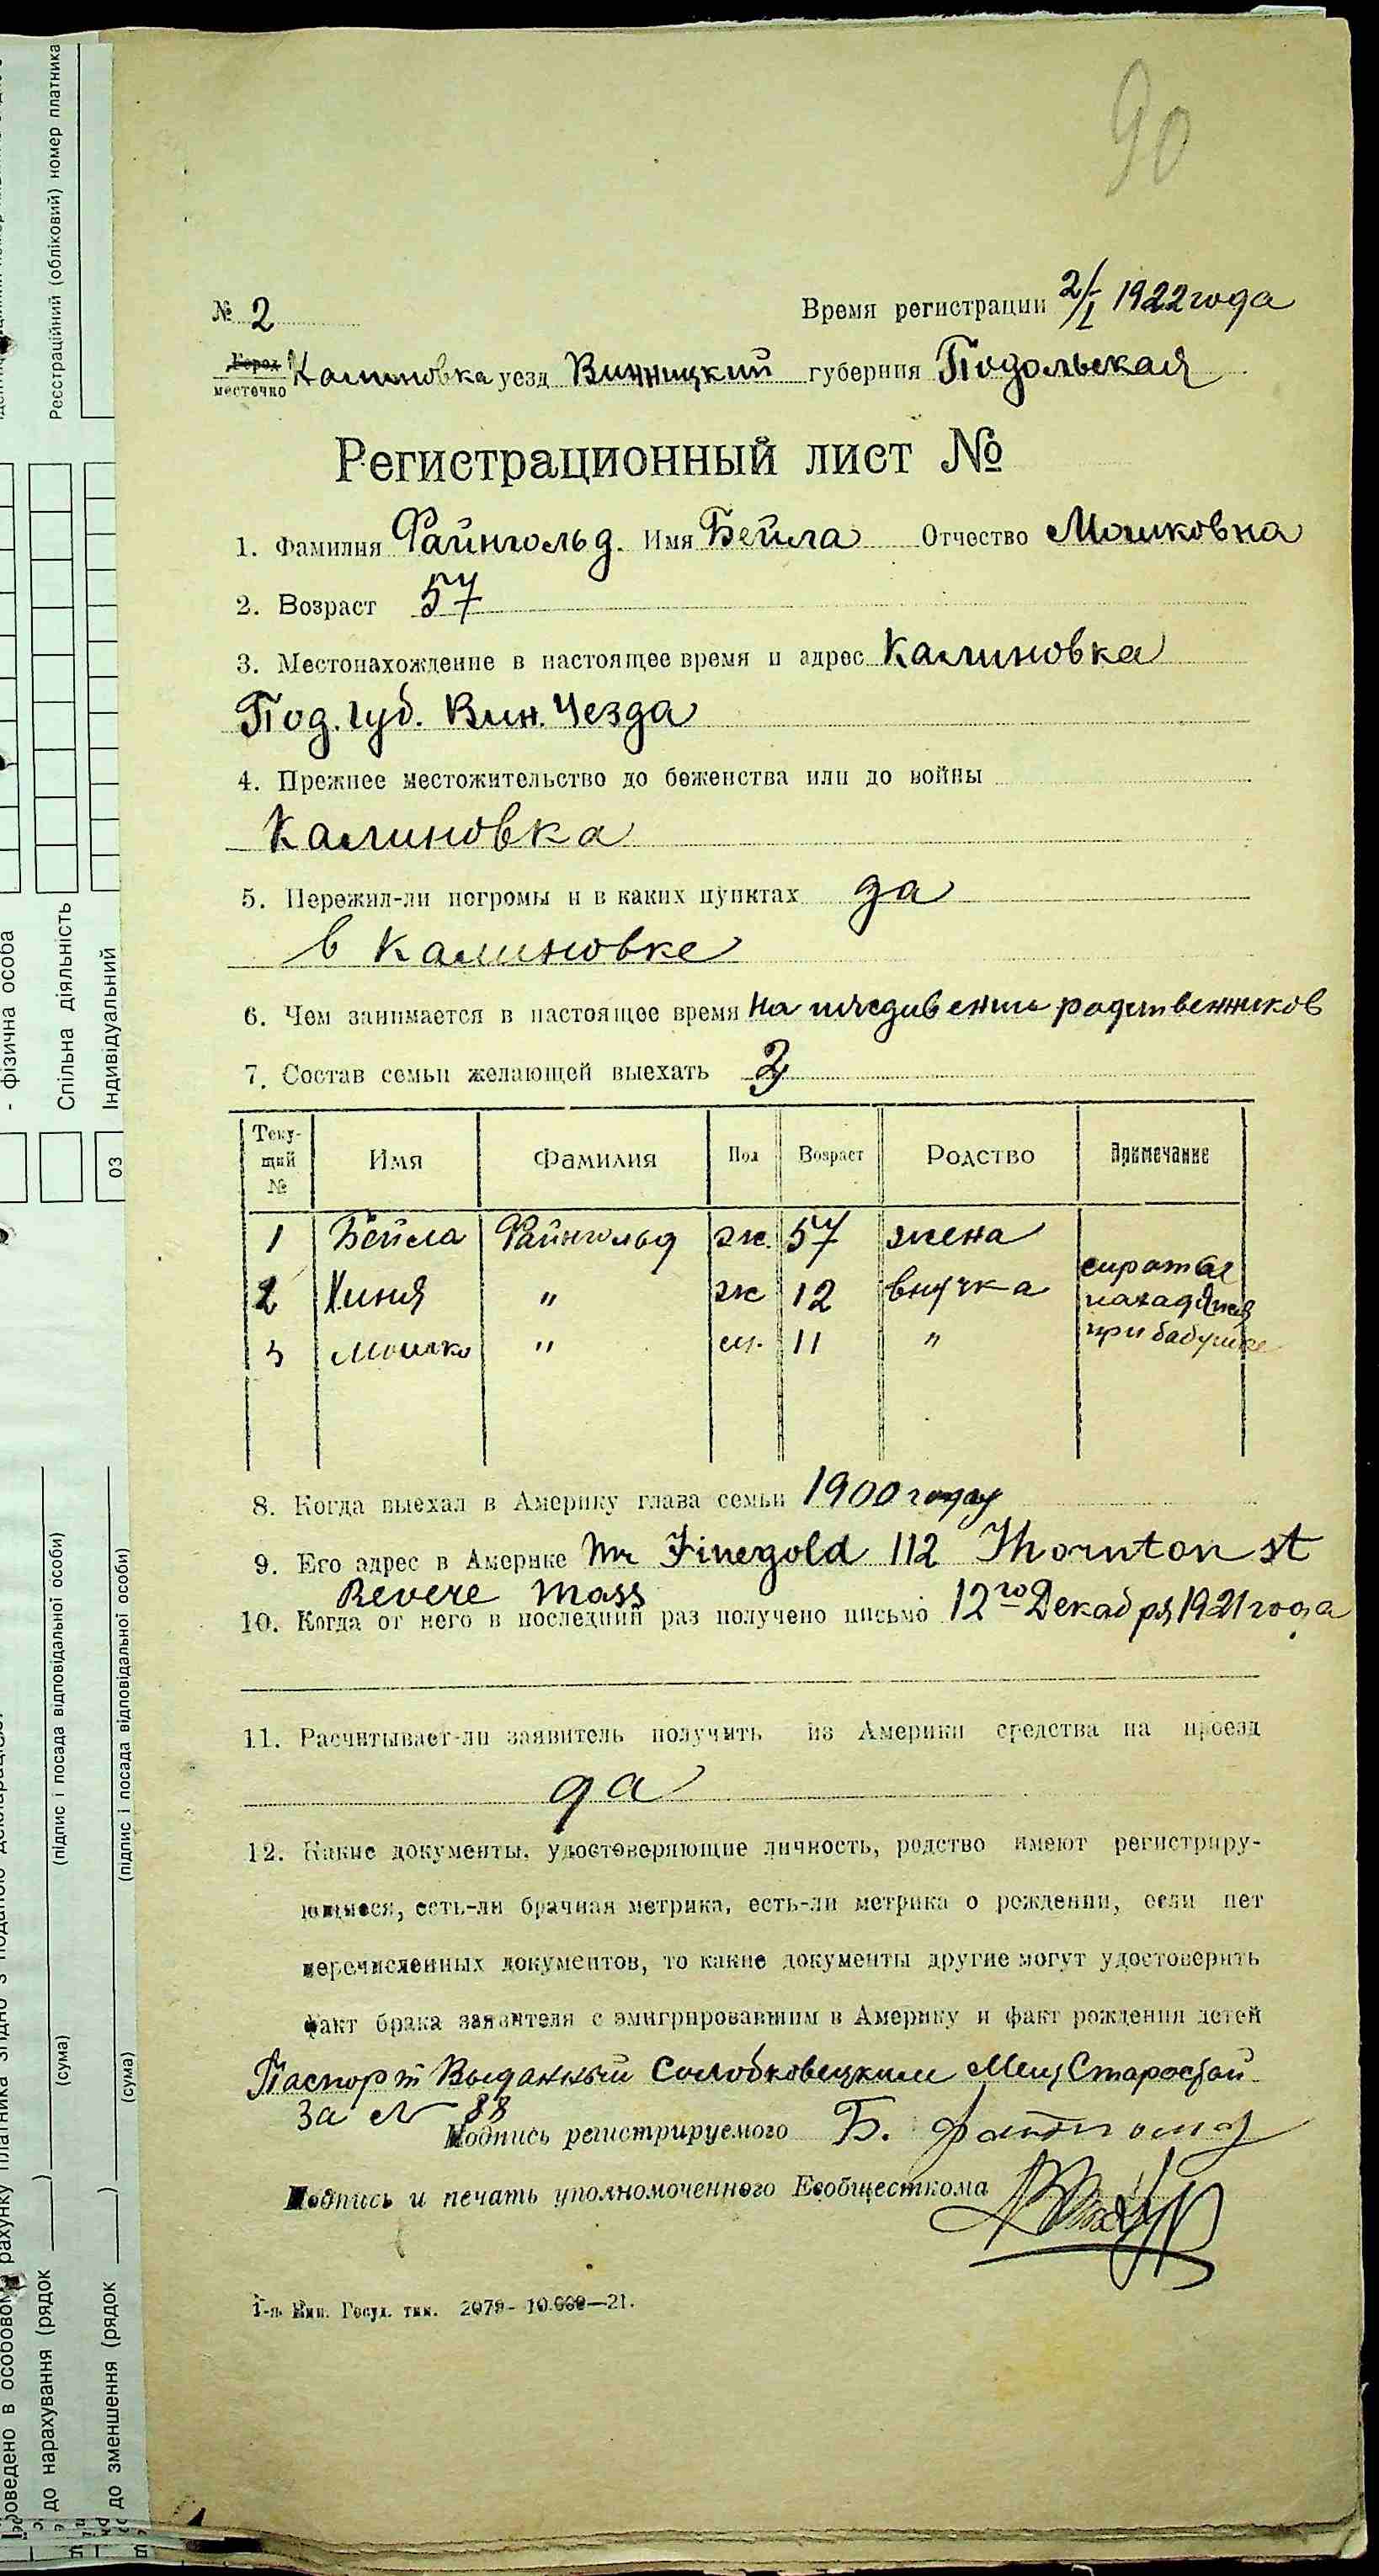 90
№ 2 Время регистрации 2/I 1922 года
Город
местечко Калиновка уезд Винницкий губерния Подольская
Регистрационный лист №
1. Фамилия Файнгольд. Имя Бейла Отчество Мошковна
2. Возраст 57
3. Местонахождение в настоящее время и адрес Калиновка
Под. губ. Вин. Уезда
4. Прежнее местожительство до беженства или до войны
Калиновка
5. Пережил-ли погромы и в каких пунктах да
в Калиновке
6. Чем занимается в настоящее время На иждивении родственников
7. Состав семьи желающей выехать 3
Теку-
щий
№ Имя Фамилия Пол Возраст Родство Примечание
1 Бейла Файнгольд ж. 57 жена
2 Хиня " ж 12 внучка сироты
3 Мошко " м. 11 " находятся
при бабушке
8. Когда выехал в Америку глава семьи 1900 году
9. Его адрес в Америке Mr Finegold 112 Thornton st
Revere Mass
10. Когда от него в последний раз получено письмо 12го Декабря 1921 года
11. Расчитывает-ли заявитель получить из Америки средства на проезд
да
12. Какие документы, удостоверяющие личность, родство имеют регистриру-
ющиеся, есть-ли брачная метрика, есть-ли метрика о рождении, если нет
перечисленных документов, то какие документы другие могут удостоверить
факт брака заявителя с эмигрировавшим в Америку и факт рождения детей
Паспорт Выданный Солобковецким Мещ Старостой
За № 88
Подпись регистрируемого Б. Файнгольд
Подпись и печать уполномоченного Евобщесткома
1-я Вин. Госуд. тип. 2079-10.000—21.
Реєстраційний (обліковий) номер платника
- фізична особа
Спільна діяльність
Індивідуальний
03
(підпис і посада відповідальної особи)
(підпис і посада відповідальної особи)
(сума)
(сума)
до нарахування (рядок )
до зменшення (рядок )